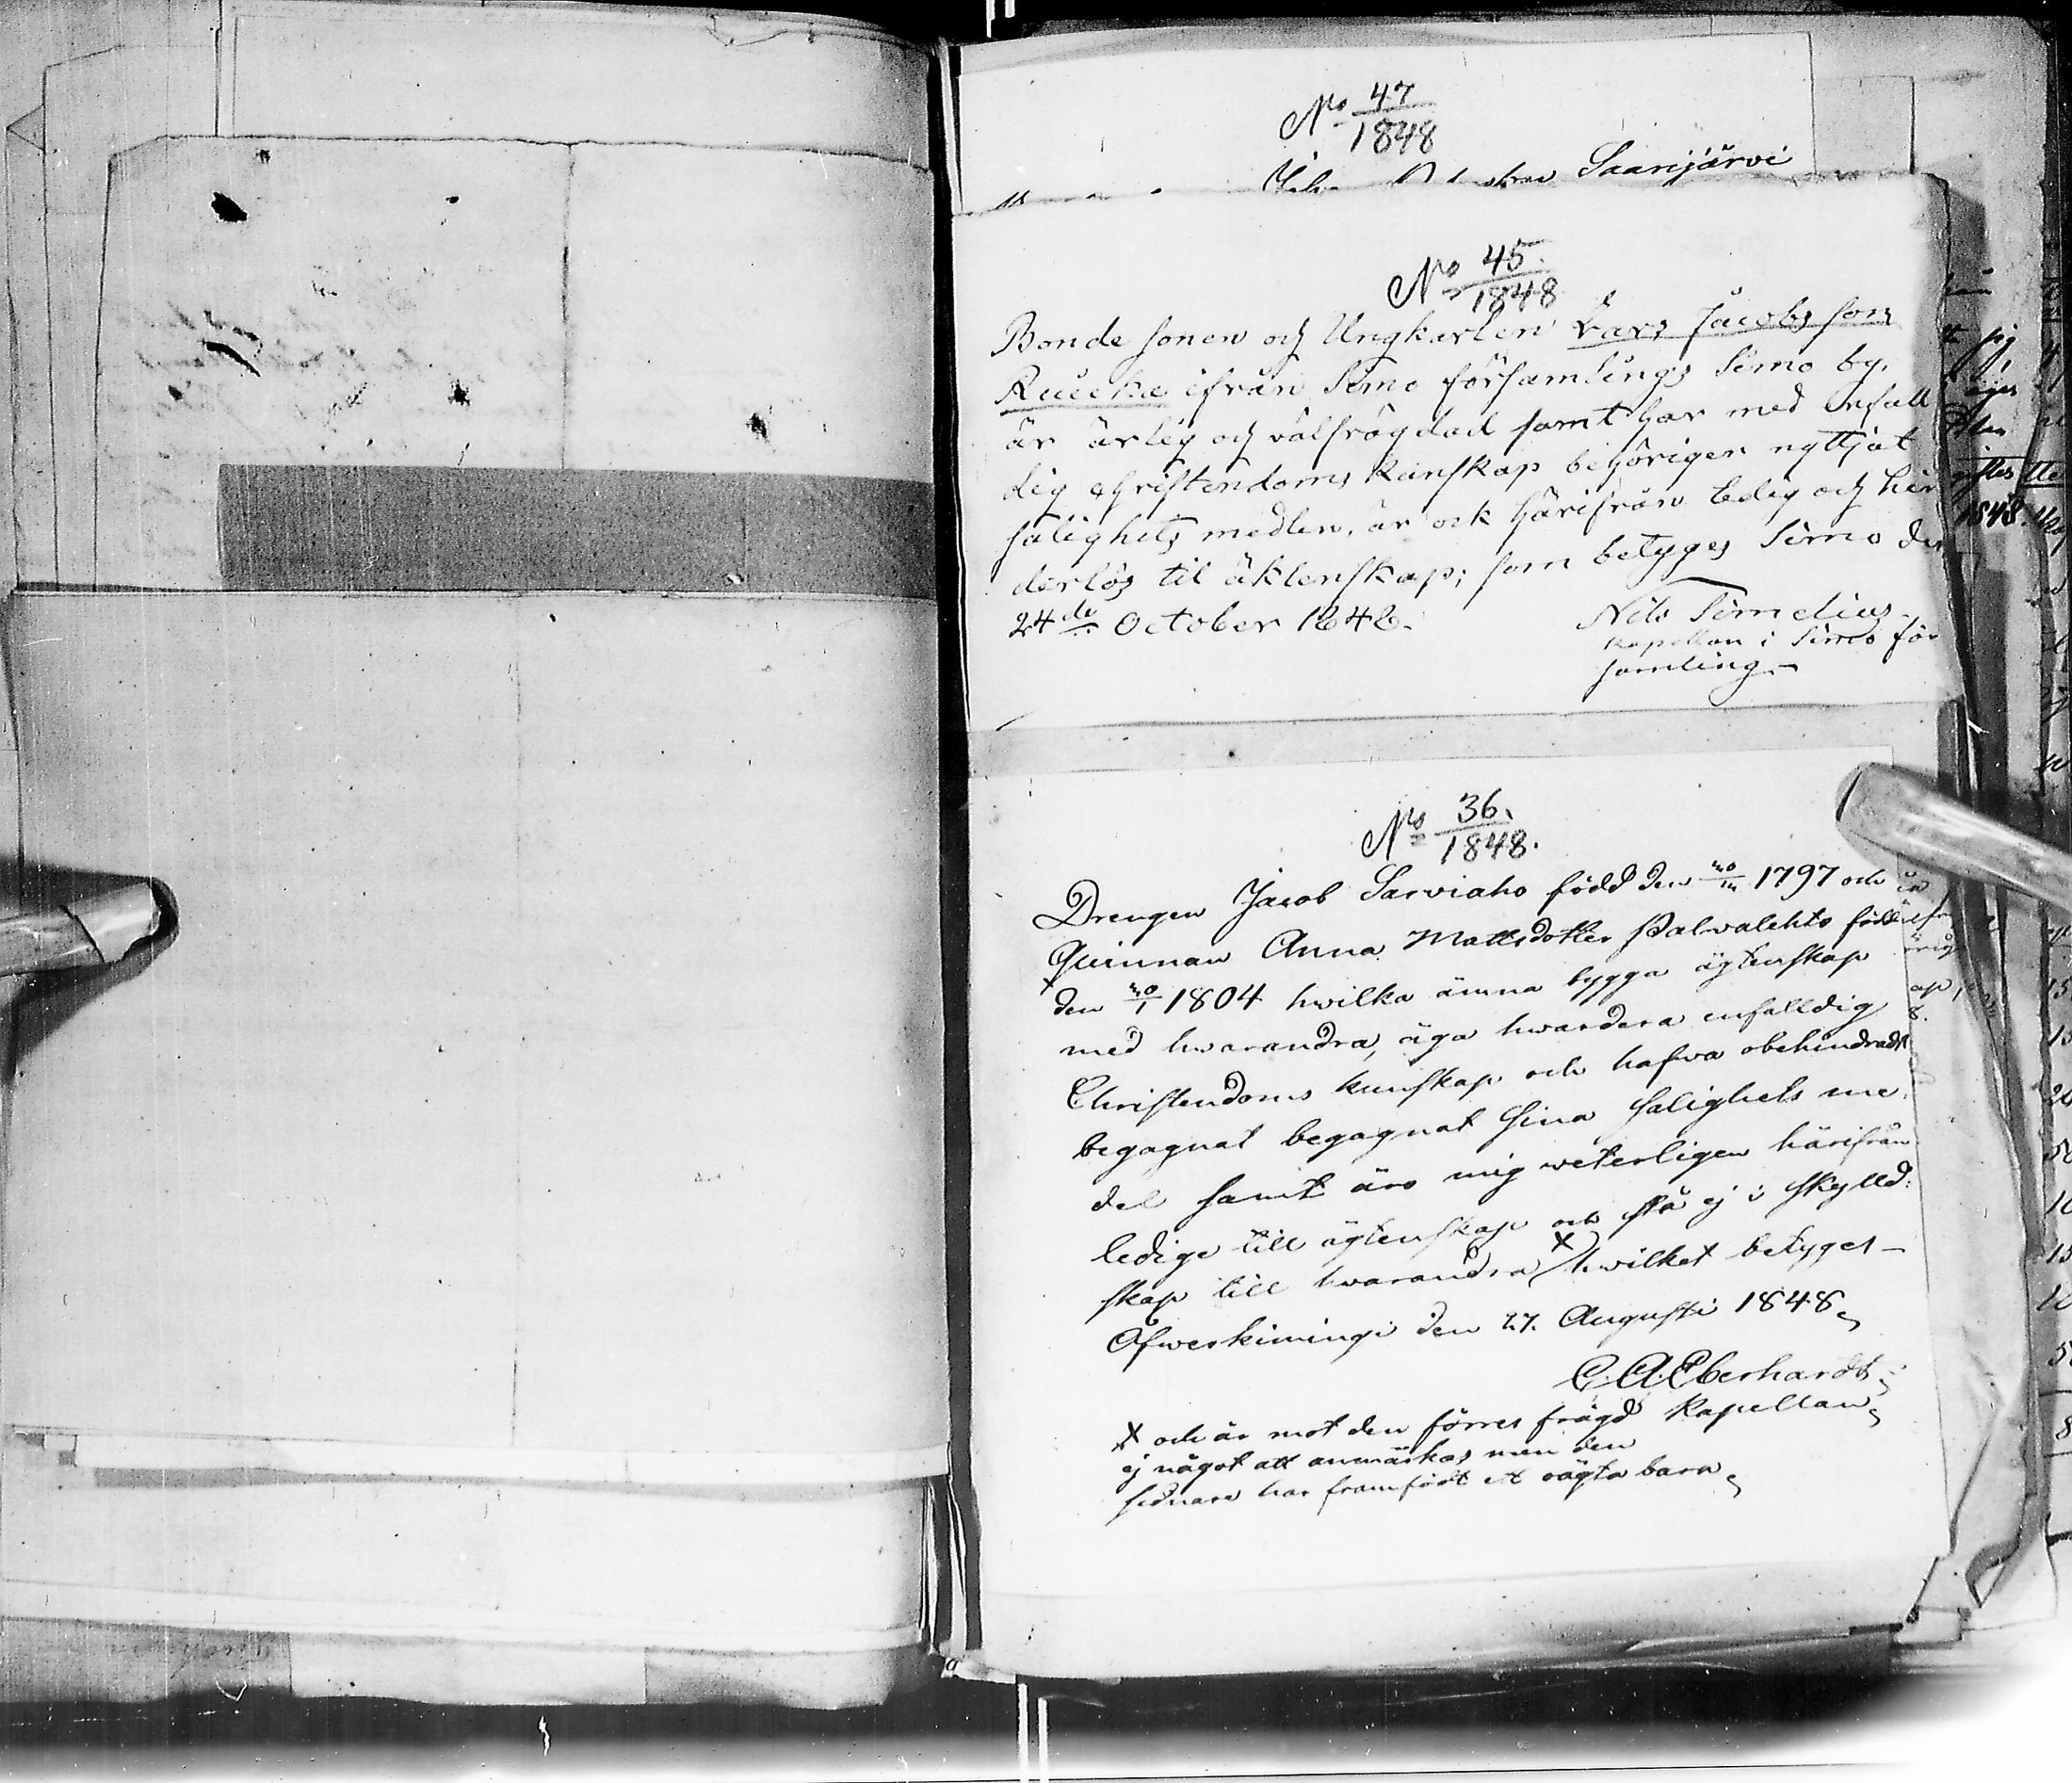 No 47/1848
Saarijärvi
No 45./1848
Bonde sonen och Ungkarlen Lars Jacobs son
Kuicka ifrån Simo församlings Simo by,
är ärlig och välfrägdad samt har med enfall
dig Christendoms kunskap behörigen nyttjat
salighets medlen, är ock härifrån ledig och hin
derlös til äktenskap; som betyges Simo den
24de October 1848.
Nils Simelius
Kapellan i Simo för
samling
No 36./1848.
Drengen Jacob Sarviaho född den 1797 och
Quinnan Anna Mattsdotter Palvalehto född
den 1804 hwilka ämna bygga ägtenskap
med hwarandra, äga hwardera enfalldig
Christendoms kunskap och hafwa obehindradt
begagnat begagnat sina salighets me
del samt äro mig weterligen härifrån
ledige till ägtenskap och stå ej i skylld:
skap till hwarandra x hwilket betyges
Ofwerkimingi den 27. Augusti 1848
C. A. Eberhardt
Kapellan
x och är mot den förres frägd
ej något att anmärkas men den
sednare har framfödt et oägta barn
1848.